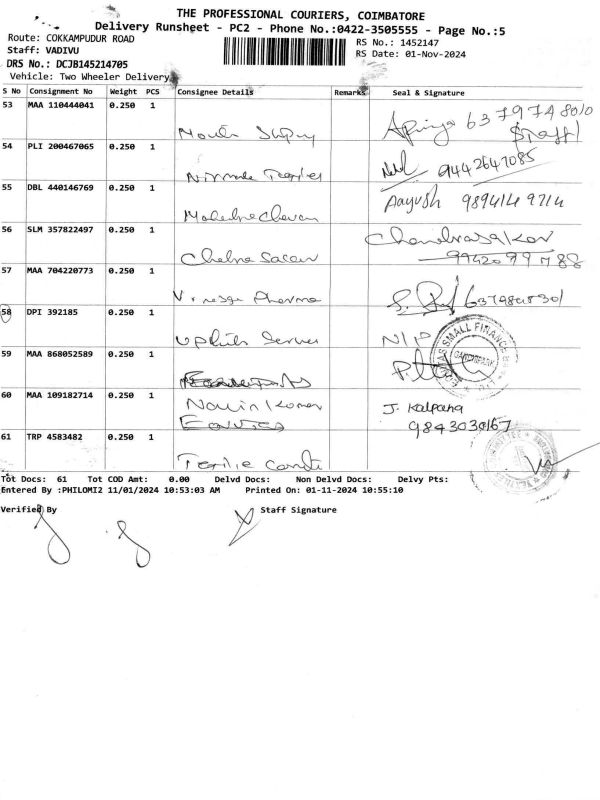 THE PROFESSIONAL COURIERS, COIMBATORE
Delivery Runsheet - PC2 - Phone No.:0422-3505555 - Page No.:5
Route: COKKAMPUDUR ROAD
RS No.: 1452147
Staff: VADIVU
RS Date: 01-Nov-2024
DRS No.: DCJB145214705
Vehicle: Two Wheeler Delivery
S No Consignment No Weight PCS Consignee Details Remarks Seal & Signature
53 MAA 110444041 0.250 1
6379748010
54 PLI 200467065 0.250 1
9442647085
55 DBL 440146769 0.250 1
Aayush 9894149714
56 SLM 357822497 0.250 1 Chandrasekar
9942099788
57 MAA 704220773 0.250 1
Pharma
58 DPI 392185 0.250 1
N/P
SMALL FINANCE
59 MAA 868052589 0.250 1
60 MAA 109182714 0.250 1 J. Kalpana
9843030167
61 TRP 4583482 0.250 1
Tot Docs: 61 Tot COD Amt: 0.00 Delvd Docs: Non Delvd Docs: Delvy Pts:
Entered By :PHILOMI2 11/01/2024 10:53:03 AM Printed On: 01-11-2024 10:55:10
Verified By Staff Signature